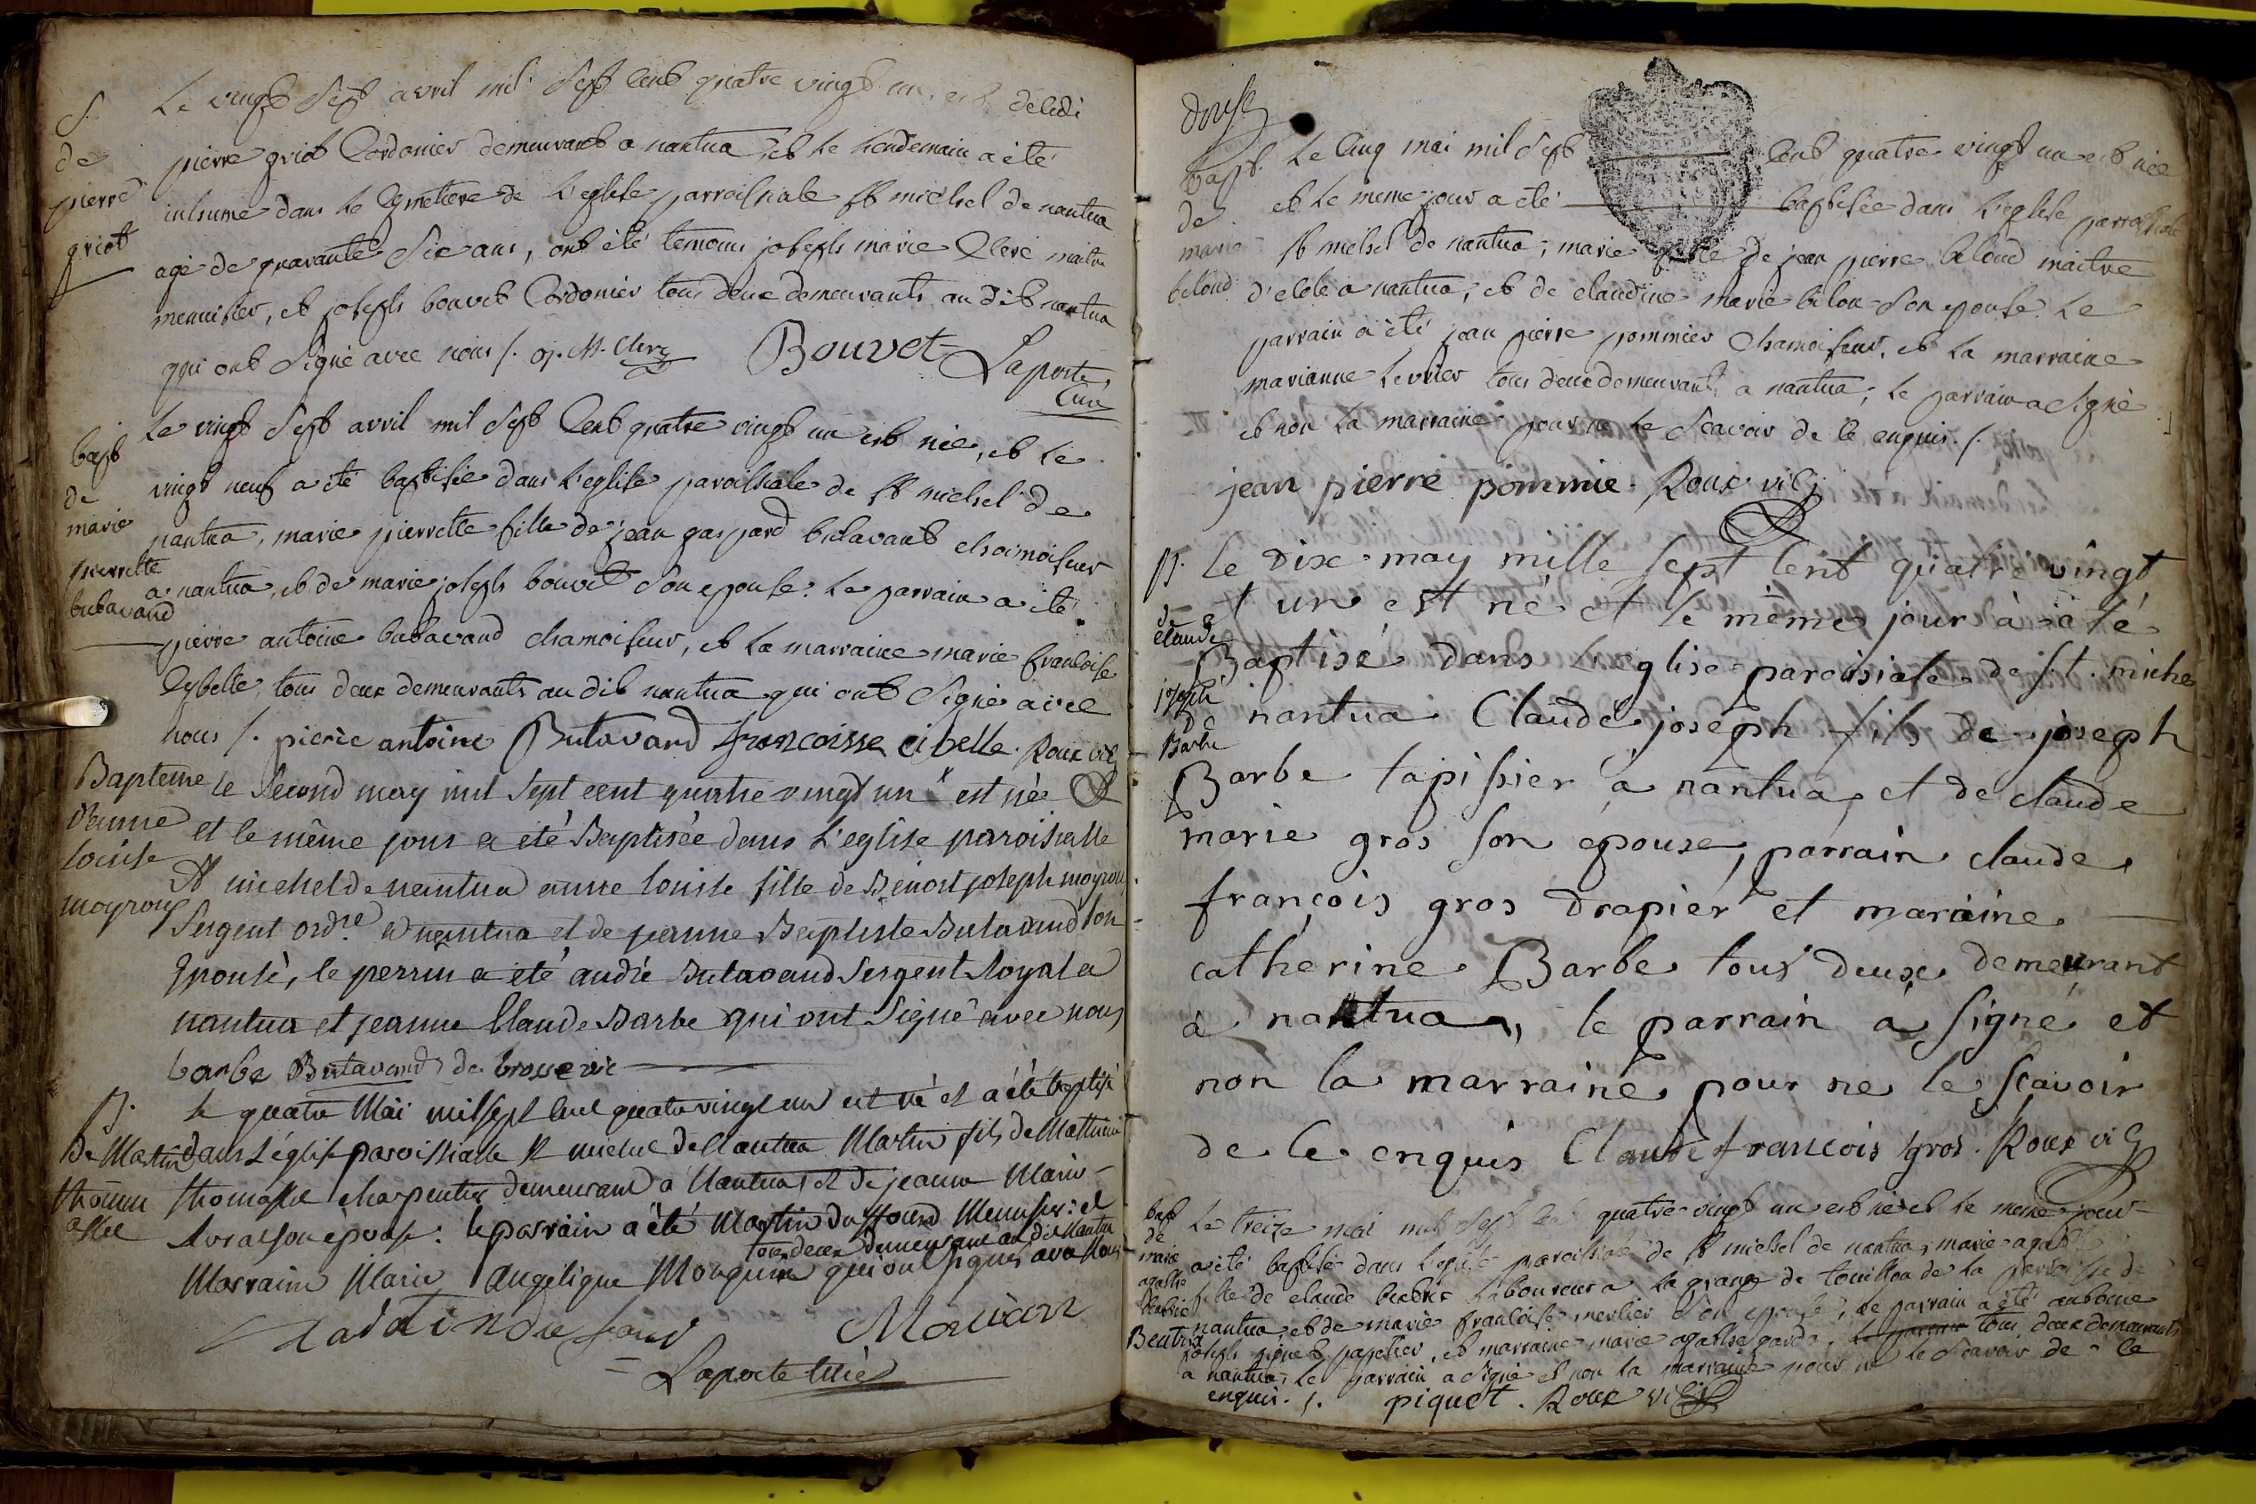 S.
de
pierre
griot
Le vingt sept avril mil sept cent quatre vingt un, est décédé
pierre griot Cordonier demeurant a nantua, et le lendemain a été
inhumé dans le Cymetiere de l'eglise parroissiale st michel de nantua
agé de quarante six ans, ont été temoins joseph marie Clerc maitre
menuisier, et joseph bouvet Cordonier tous deux demeurants au dit nantua
qui ont signé avec nous /. j. M. Clerc Bouvet Laporte,
Curé
bapt
de
marie
pierrette
butavand
Le vingt sept avril mil sept Cent quatre vingt un est née, et le
vingt neuf a été baptisée dans l'eglise paroissiale de st michel de
nantua, marie pierrette fille de jean gaspard butavant chamoiseur
a nantua, et de marie joseph bouvet son epouse. Le parrain a été
pierre antoine butavand chamoiseur, et la marraine marie francoise
Cybelle, tous deux demeurants au dit nantua qui ont signé avec
nous /. pierre antoine Butavand francoisse cibelle. Roux vic
Bapteme
d'anne
louise
moyroux
le second may mil sept cent quatre vingt un est née
et le même jour a été Baptisée dans l'eglise paroissialle
St michel de nantua anne louise fille de Benoit joseph moyroux
sergent ordre a nantua et de jeanne Baptiste Butavand son
Epouse, le perrin a été andré Butavand sergent Royal a
nantua et jeanne Claude Barbe qui ont signé avec nous
barbe Butavand de brosse vic
B.
De Martin
thomasset
le quatre Mai mil sept cent quatre vingt un est né et a été baptisé
dans l'église paroissiale st michel de Nantua Martin fils de Mathieu
thomasset charpentier demeurant a Nantua et de jeanne Marie
son epouse: le parrain a été Martin dufourd Menusier: et
tous deux demeurant au dit Nantua
Marraine Marie Angelique Monguin qui ont signés avec Nous
Laporte Curé
douse
bapt.
de
marie
beloud
Le Cinq mai mil sept Cent quatre vingt un est née
et le meme jour a été baptisée dans l'eglise parroissiale
st michel de nantua; marie fille de jean pierre beloud maitre
d'ecole a nantua; et de claudine marie bilon son epouse. Le
parrain a été jean pierre pommier Chamoiseur, et la marraine
marianne Levrier tous deux demeurant a nantua; le parrain a signé
et non la marraine pour ne le scavoir de ce enquis /.
jean pierre pommie. Roux vic
B.
de
claude
joseph
de
Barbe
le Dix may mille sept cent quatre vingt
et un est né et le même jour à été
Baptisé dans l'eglise paroisiale de st. miche
nantua Claude joseph fils de joseph
Barbe tapissier à nantua, et de claude
marie gros son epouse, parrain claude
françois gros drapier et maraine
catherine Barbe tous deux demeurant
à nantua, le parrain à signé et
non la marraine pour ne le sçavoir
de ce enquis Claude francois gros. Roux vic
bapt
de
marie
agathe
Beutrix
Le treize mai mil sept cent quatre vingt un est née et le meme jour
a été baptisée dans l'eglise paroissiale de st michel de nantua, marie agathe
fille de claude Laboureur a la grange de de la parroisse de
nantua, et de marie francoise mertier son epouse, le parrain a été antoine
joseph piquet papetier, et marraine marie agathe tous deux demeurants
a nantua; Le parrain a signé et non la marraine pour ne le scavoir de ce
enquis. /. piquet. Roux vic